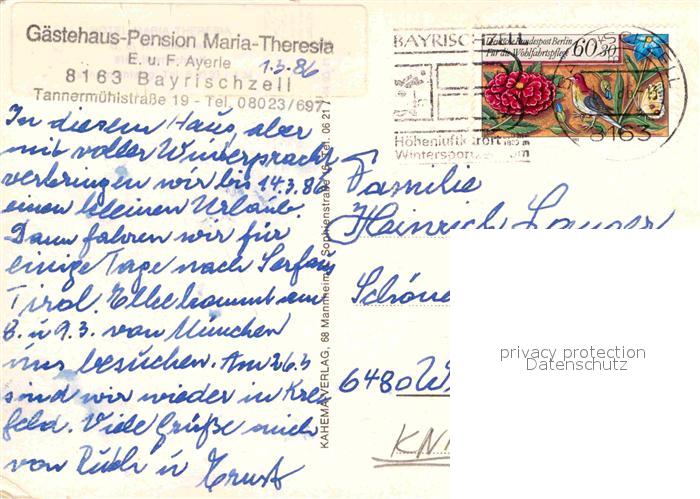 Gästehaus-Pension Maria-Theresia
E. u. F. Ayerle
8163 Bayrischzell
Tannermühlstraße 19 - Tel. 08023/697
1.3.86
In diesem Haus, aber
mit voller Winterspracht
verbringen wir bis 14.3.86
einen kleinen Urlaub.
Dann fahren wir für
einige Tage nach Serfaus
Tirol. Elke kommt am
8. u 9.3. von München
uns besuchen. Am 26.3
sind wir wieder in Kre-
feld. Viele Grüße auch
von Ruth u Ernst
KAHEMA VERLAG, 68 Mannheim, Sophienstraße
BAYRISCHZELL
Höhenluftkurort
Wintersport
Deutsche Bundespost Berlin
Für die Wohlfahrtspflege
60+30
8163
Familie
Heinrich
Schöne
6480
privacy protection
Datenschutz